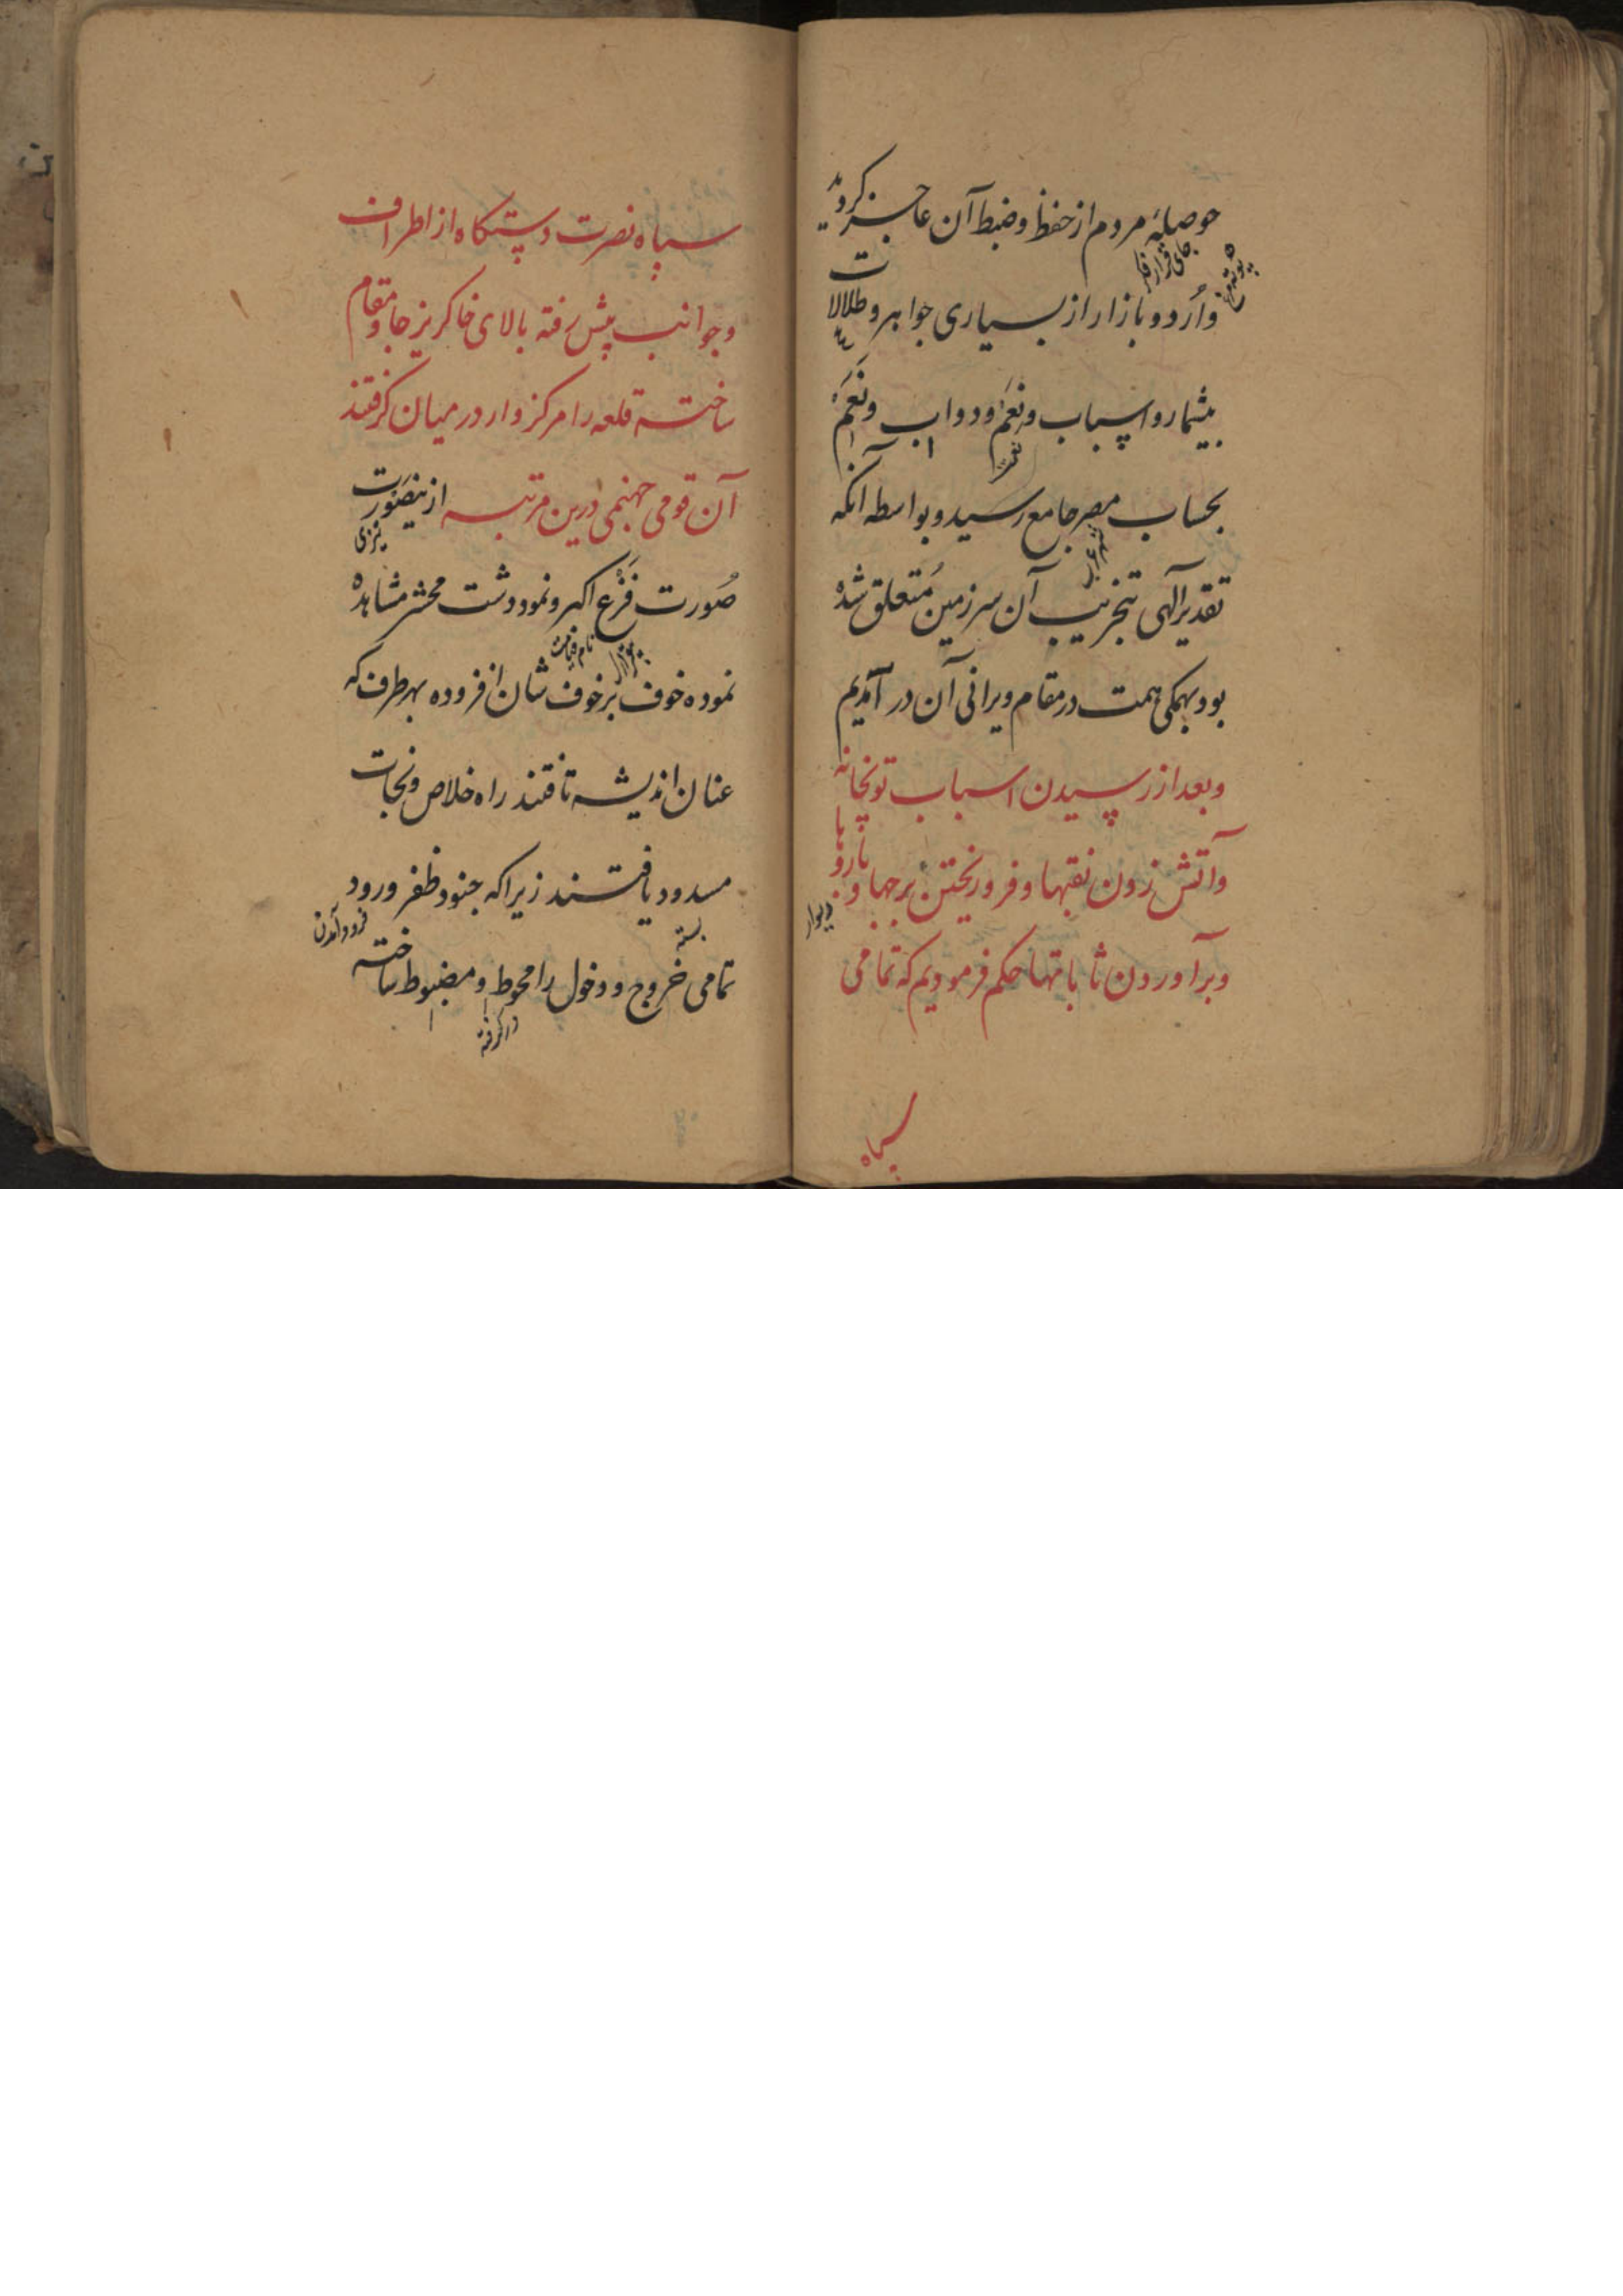 حوصلهٔ مردم از حفظ و ضبط آن عاجز گردید
جای قرار
و اُردو بازار از بسیاری جواهر و طلاالات
بیشمار و اسباب و نِعَم و دواب و نَعَم
بحساب مصر جامع رسید و بواسطه آنکه
تقدیر آلهی بتخریب آن سرزمین مُتعلق شده
بود بهمگی همت در مقام ویرانی آن در آمدیم
و بعد از رسیدن اسباب توپخانه
و آتش زدن نقبها و فرو ریختن برجها و باروها
دیوار
و برآوردن ثاباتها حکم فرمودیم که تمامی
سپاه
سپاه نصرت دستگاه از اطراف
و جوانب پیش رفته بالای خاکریز جا و مقام
ساخته قلعه را مرکز وار در میان گرفتند
آن قومی جهنمی درین مرتبه ازینصَورت
صُورت فَزْع اکبر و نمود دشت محشر مشاهده
نام قیامت
نموده خوف بر خوف شان افزوده بهر طرف که
عنان اندیشه تافتند راه خلاص و نجات
مسدود یافتند زیرا که جنود ظفر ورود
بسته
فرود آمدن
تمامی خروج و دخول را محوط و مضبوط ساخته
در گرفته